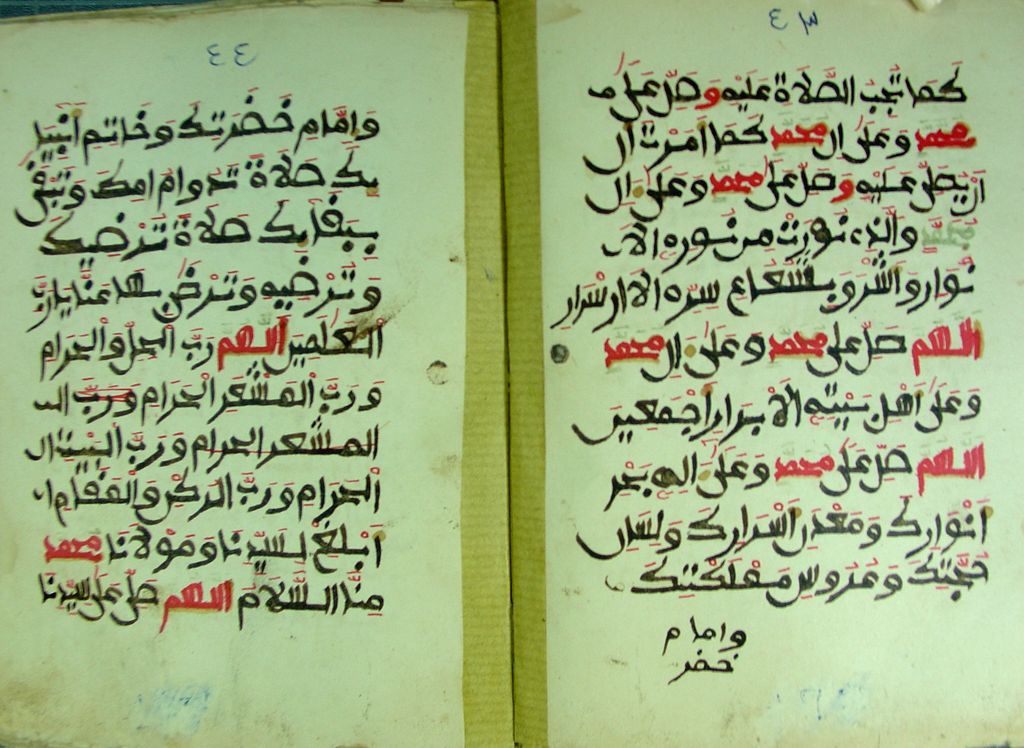 ٤٣
كما تجب الصلاة عليه وصل على م
محمد وعلى ال محمد كما امرت ال
ان يصلى عليه وصل على محمد وعلى ال
محمد والذى نورت من نوره الا
نوار واشرو بشعاع سره الا ارسرار
اللهم صل على محمد وعلى ال محمد
وعلى اهل بيته الابرار اجمعين
اللهم صل على محمد وعلى اله بحر
انوارك ومعدن اسرارك ولسان
حجتك وعروس مملكتك
وامام
حضر
٤٤
وامام حضرتك وخاتم انبيا
يك صلاة تدوام امك وتبقى
ببقايك صلاة ترضيك
وترضيه وترضى بها عنا يارب
العلمين اللهم رب الحل والحرام
ورب المشعر الحرام ورب الـ
المشعر الحرام ورب البيت ال
الحرام ورب الركن والمقام ا
ابلغ لسيدنا ومولانا محمد
منا السلام اللهم صل على سيدنا